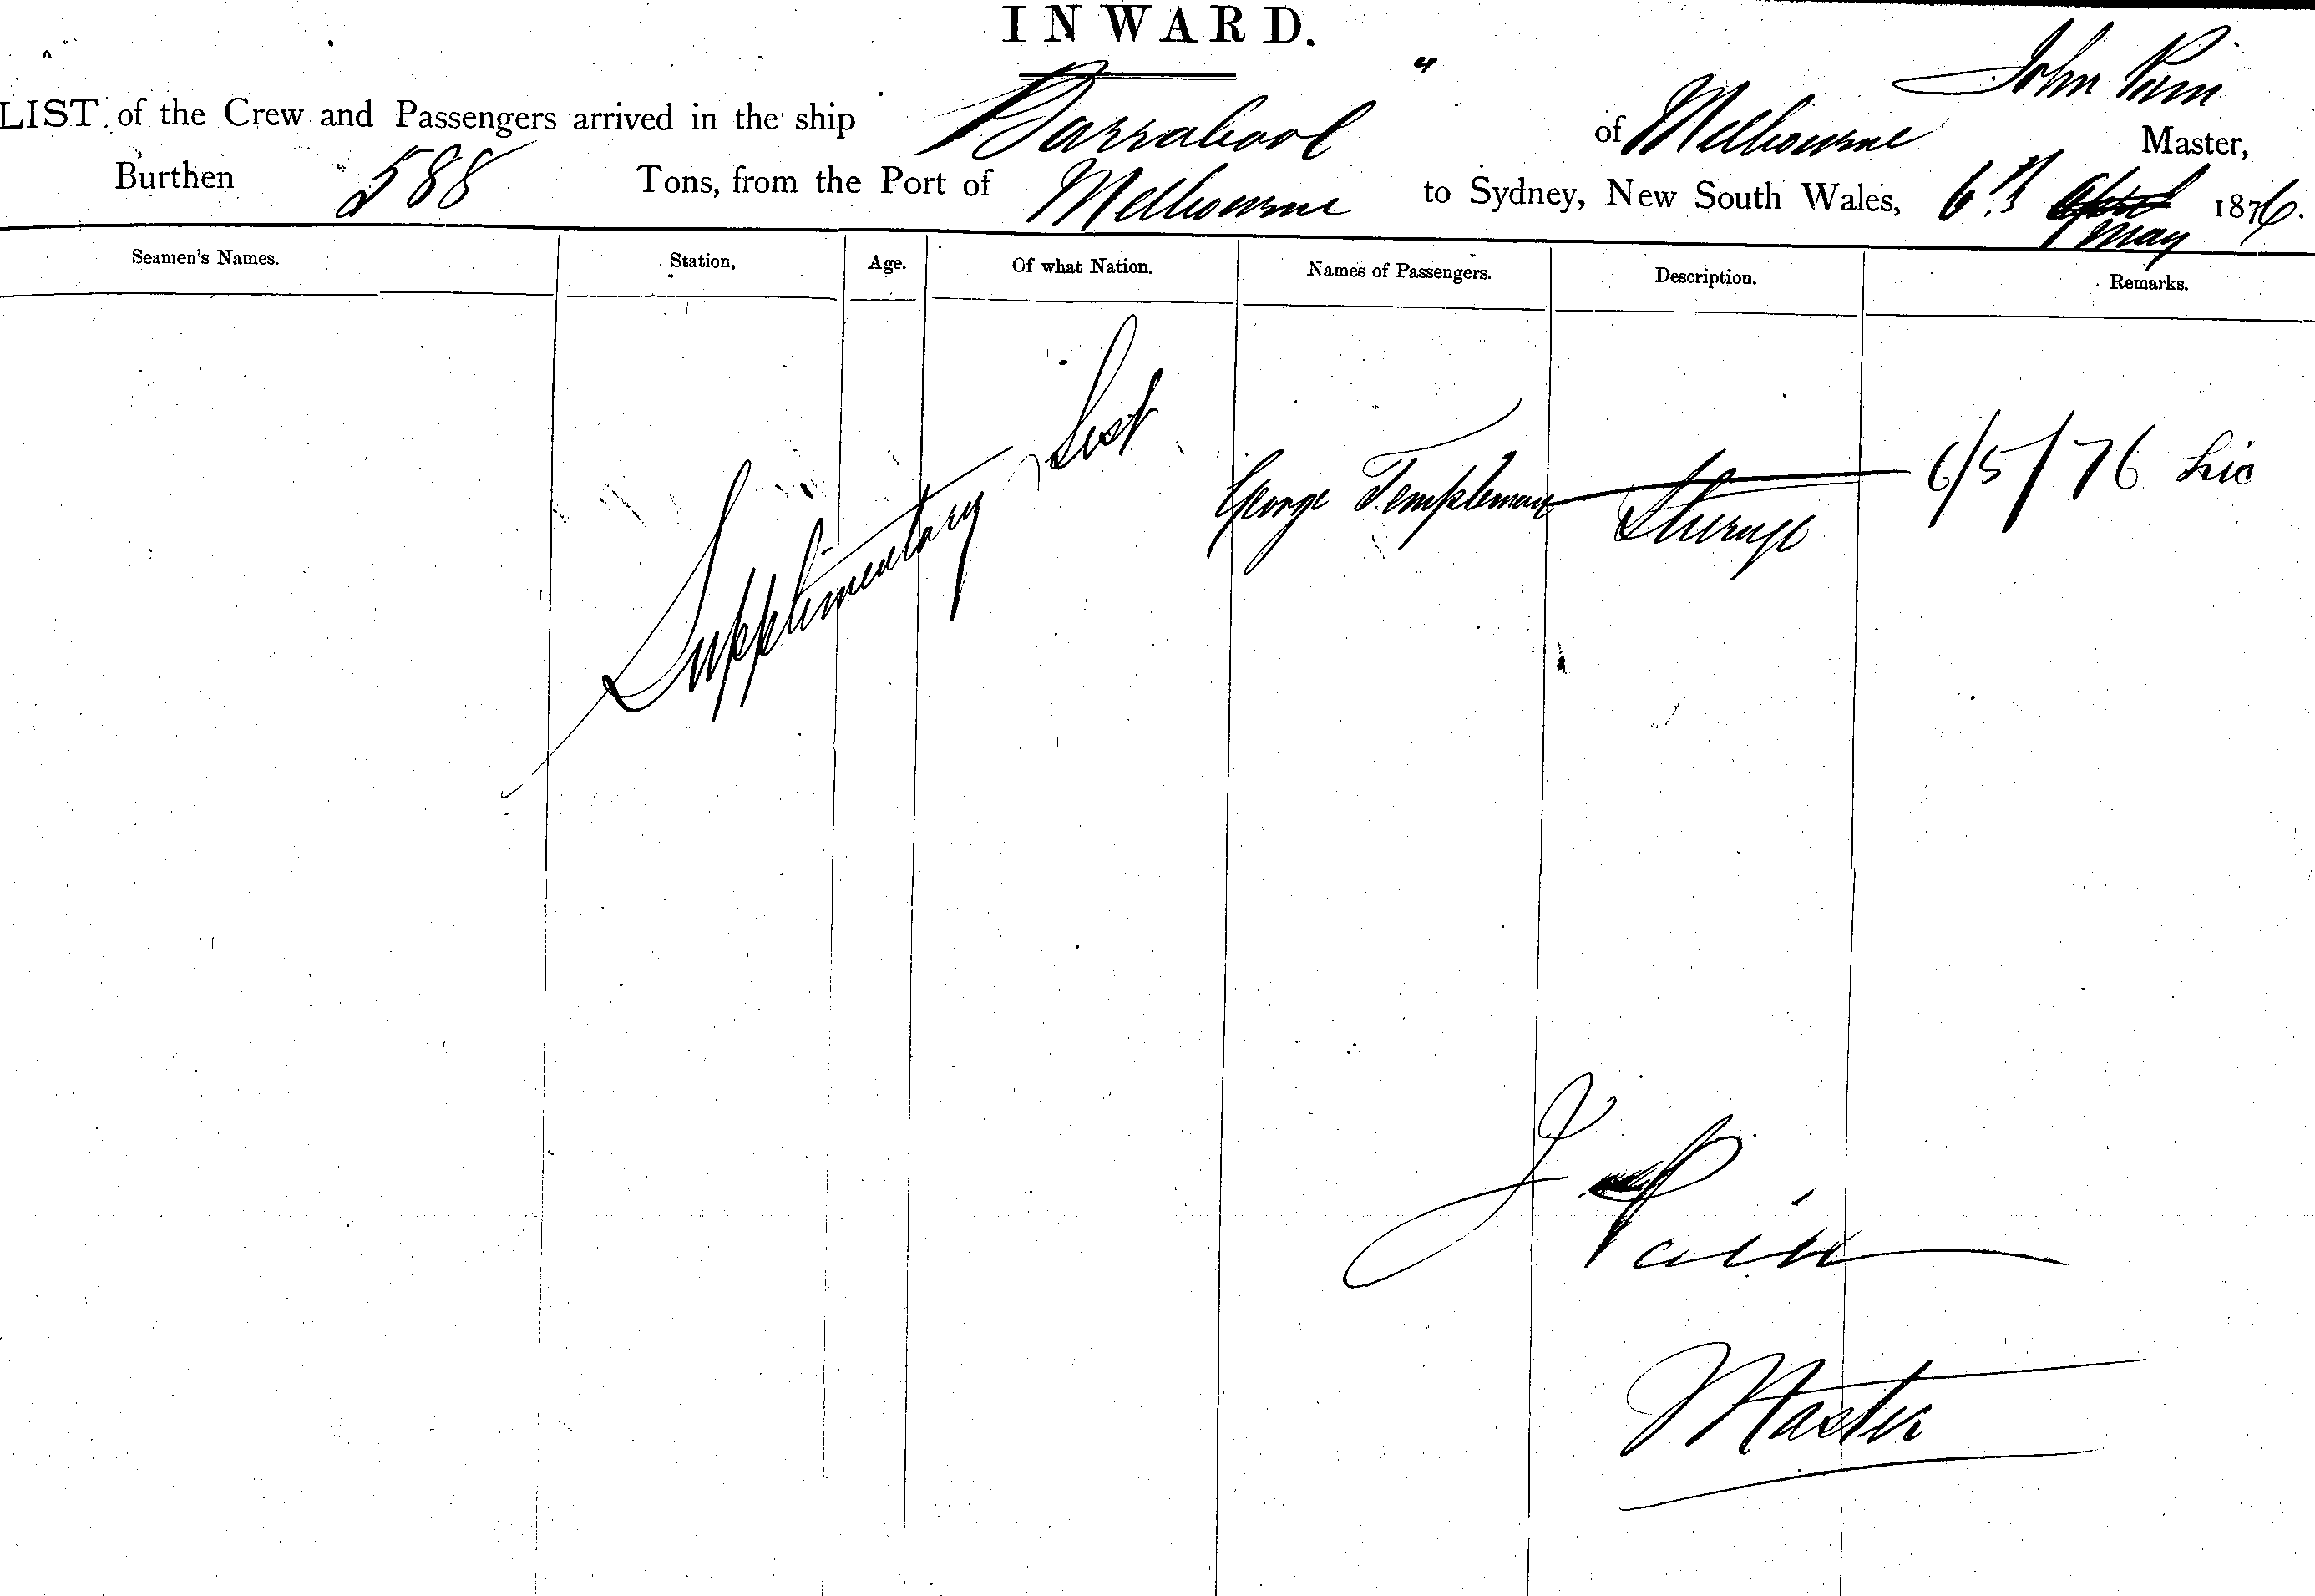 INWARD.
LIST of the Crew and Passengers arrived in the ship "Barrabool" of Melbourne John Pain Master,
Burthen 588 Tons, from the Port of Melbourne to Sydney, New South Wales, 6th April May 1876.
Seamen's Names. Station, Age. Of what Nation. Names of Passengers. Description. Remarks.
Supplimentary List
George Templeman Sterage 6/5/76
J Pain
Master